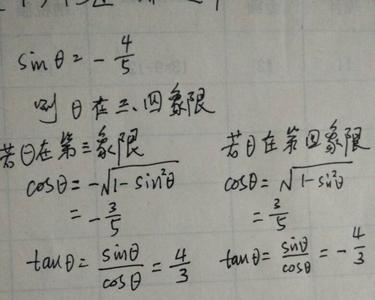 sinθ = -4/5
则 θ 在三、四象限
若θ在第三象限
cosθ = -√(1-sin²θ)
= -3/5
tanθ = sinθ/cosθ = 4/3
若θ在第四象限
cosθ = √(1-sin²θ)
= 3/5
tanθ = sinθ/cosθ = -4/3